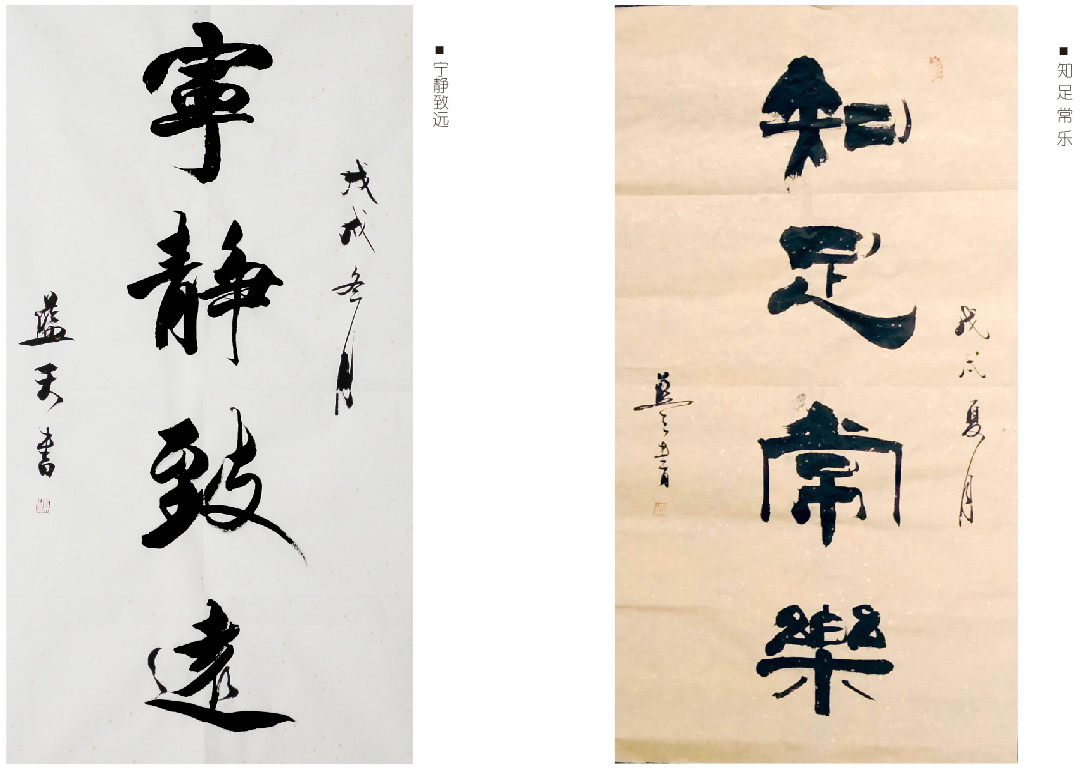 寧靜致遠
戊戌冬月
蓝天書
■宁静致远
知足常樂
戊戌夏月
■知足常乐